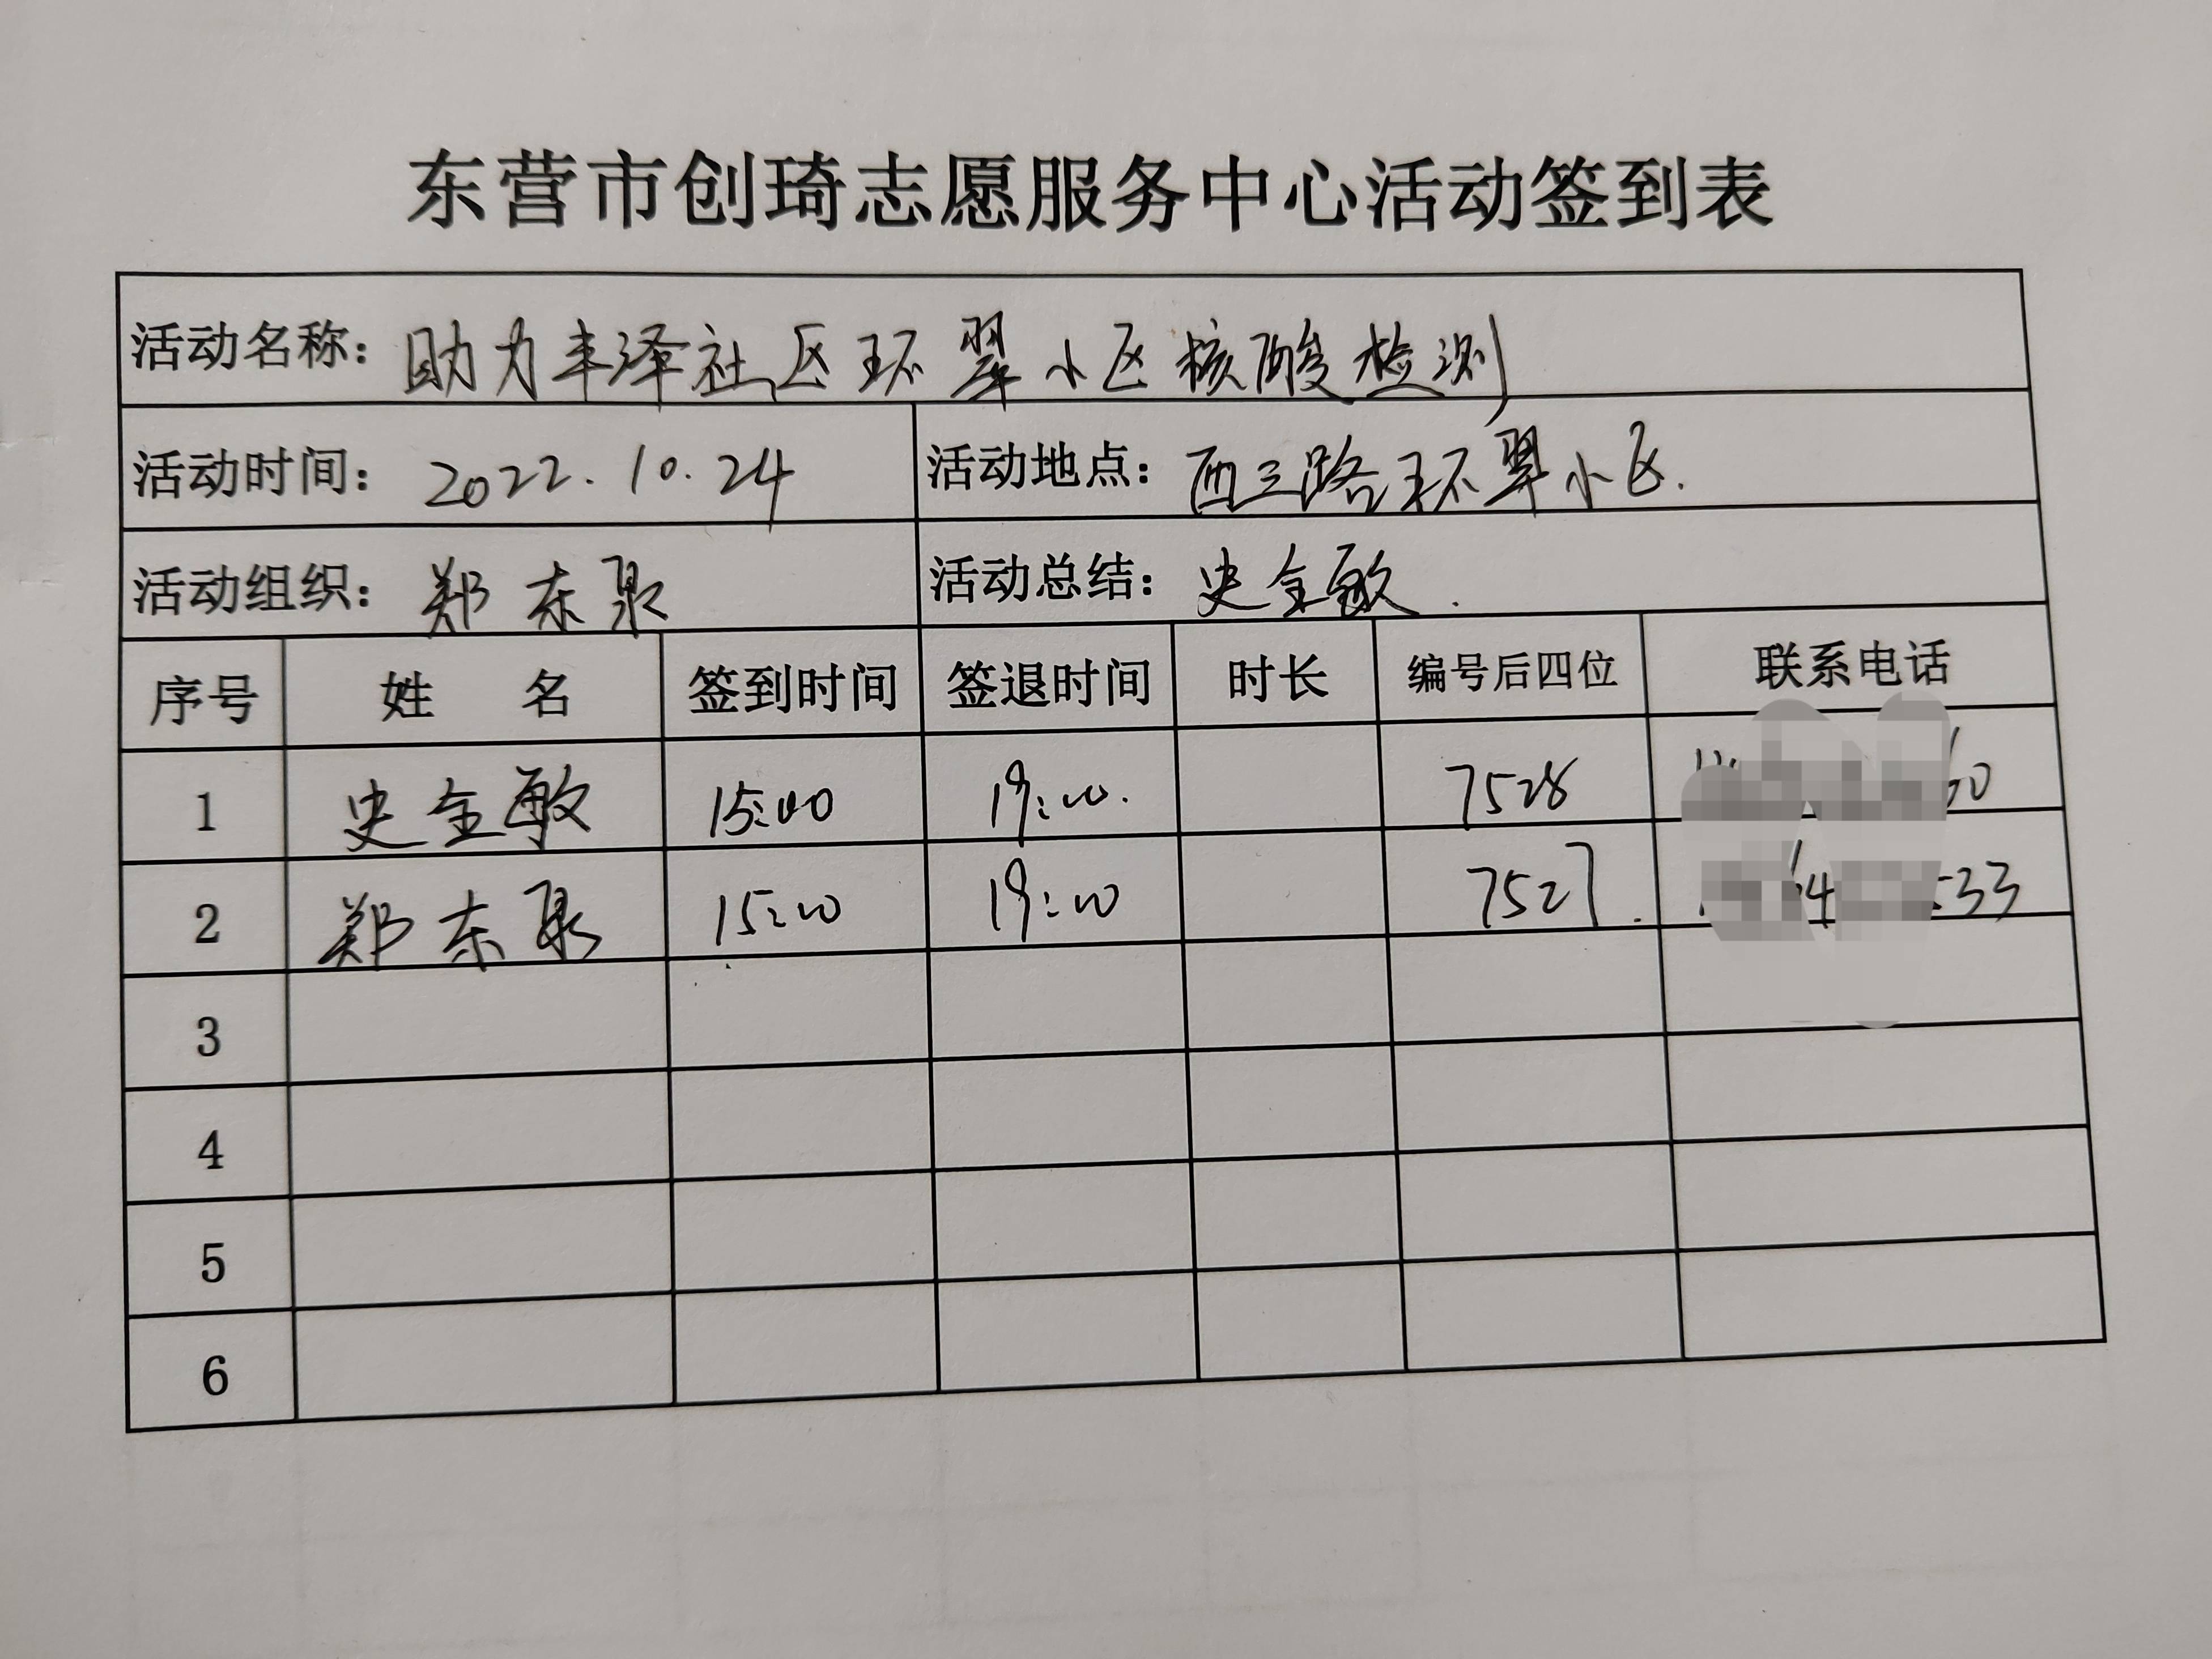 东营市创琦志愿服务中心活动签到表
活动名称：助力丰泽社区环翠小区核酸检测
活动时间：2022.10.24 活动地点：西三路环翠小区.
活动组织：郑东泉 活动总结：史金敏.
序号 姓名 签到时间 签退时间 时长 编号后四位 联系电话
1 史金敏 15:00 19:00. 7528 60
2 郑东泉 15:00 19:00 7527. 533
3
4
5
6